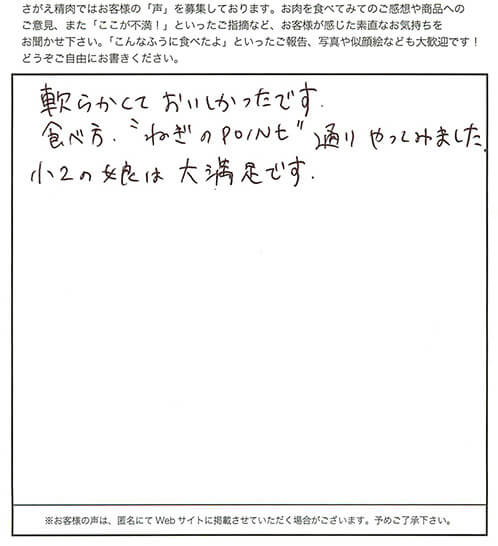 さがえ精肉ではお客様の「声」を募集しております。お肉を食べてみてのご感想や商品への
ご意見、また「ここが不満！」といったご指摘など、お客様が感じた素直なお気持ちを
お聞かせ下さい。「こんなふうに食べたよ」といったご報告、写真や似顔絵なども大歓迎です！
どうぞご自由にお書きください。
軟らかくて おいしかったです.
食べ方.〝ねぎのPOINt〟通り やってみました.
小2の娘は 大満足です.
※お客様の声は、匿名にて Web サイトに掲載させていただく場合がございます。予めご了承下さい。